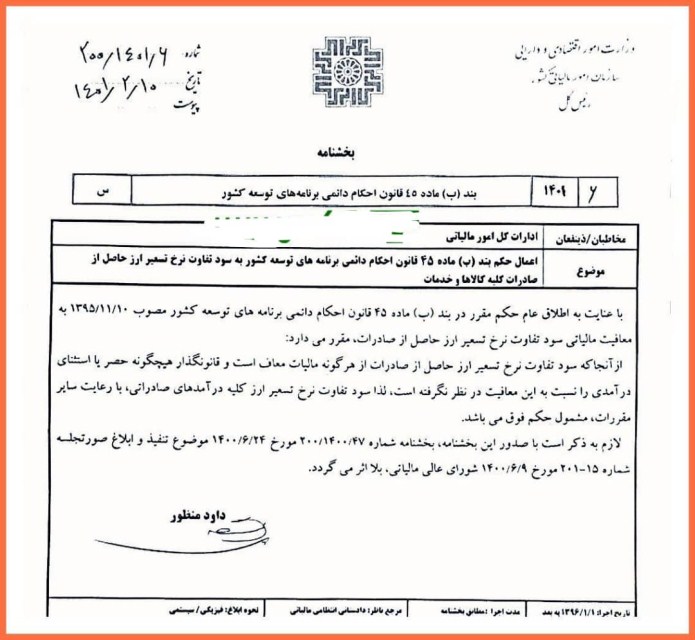 وزارت امور اقتصادی و دارایی
سازمان امور مالیاتی کشور
رئیس کل
شماره ۲۰۰/۱۴۰۱/۶
تاریخ ۱۴۰۱/۲/۱۰
پیوست
بخشنامه
۶ ۱۴۰۱ بند (ب) ماده ٤٥ قانون احکام دائمی برنامه‌های توسعه کشور س
مخاطبان/ذینفعان ادارات کل امور مالیاتی
موضوع اعمال حکم بند (پ) ماده ۴۵ قانون احکام دائمی برنامه های توسعه کشور به سود تفاوت نرخ تسعیر ارز حاصل از
صادرات کلیه کالاها و خدمات
با عنایت به اطلاق عام حکم مقرر در بند (ب) ماده ۴۵ قانون احکام دائمی برنامه های توسعه کشور مصوب ۱۳۹۵/۱۱/۱۰ به
معافیت مالیاتی سود تفاوت نرخ تسعیر ارز حاصل از صادرات، مقرر می دارد:
ازآنجاکه سود تفاوت نرخ تسعیر ارز حاصل از صادرات از هرگونه مالیات معاف است و قانونگذار هیچگونه حصر یا استثنای
درآمدی را نسبت به این معافیت در نظر نگرفته است، لذا سود تفاوت نرخ تسعیر ارز کلیه درآمدهای صادراتی، با رعایت سایر
مقررات، مشمول حکم فوق می باشد.
لازم به ذکر است با صدور این بخشنامه، بخشنامه شماره ۲۰۰/۱۴۰۰/۴۷ مورخ ۱۴۰۰/۶/۲۴ موضوع تنفیذ و ابلاغ صورتجلسه
شماره ۱۵-۲۰۱ مورخ ۱۴۰۰/۶/۹ شورای عالی مالیاتی، بلا اثر می گردد.
داود منظور
تاریخ اجرا: ۱۳۹۶/۱/۱ به بعد مدت اجرا :مطابق بخشنامه مرجع ناظر: دادستانی انتظامی مالیاتی نحوه ابلاغ: فیزیکی/ سیستمی